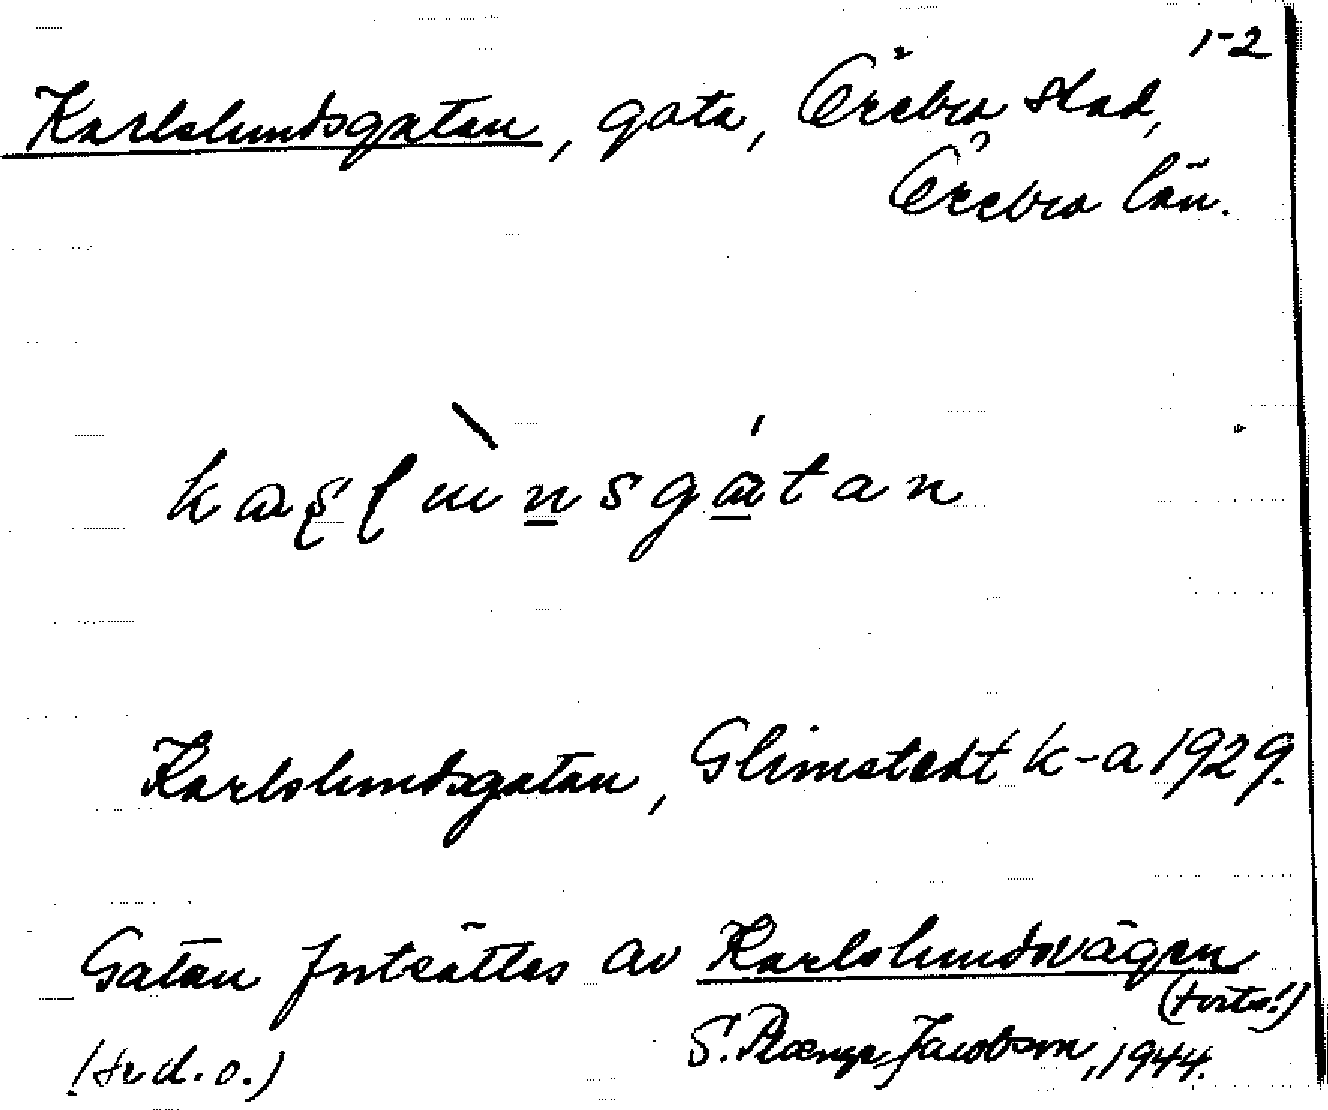 1-2
Karlslundsgatan, gata, Örebro stad,
Örebro län.
Karlslundsgatan, Glimstedt k-a 1929.
Gatan fortsättes av Karlslundsvägen
(forts!)
(se d. o.) S. Jacobson, 1944.